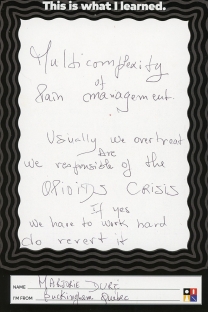 This is what I learned.
Multicomplexity
of
Pain management.
Usually we overtreat
Are
we responsible of the
OPIOIDS CRISIS
If yes
we have to work hard
to revert it
NAME MARJORIE
I'M FROM Buckingham Quebec